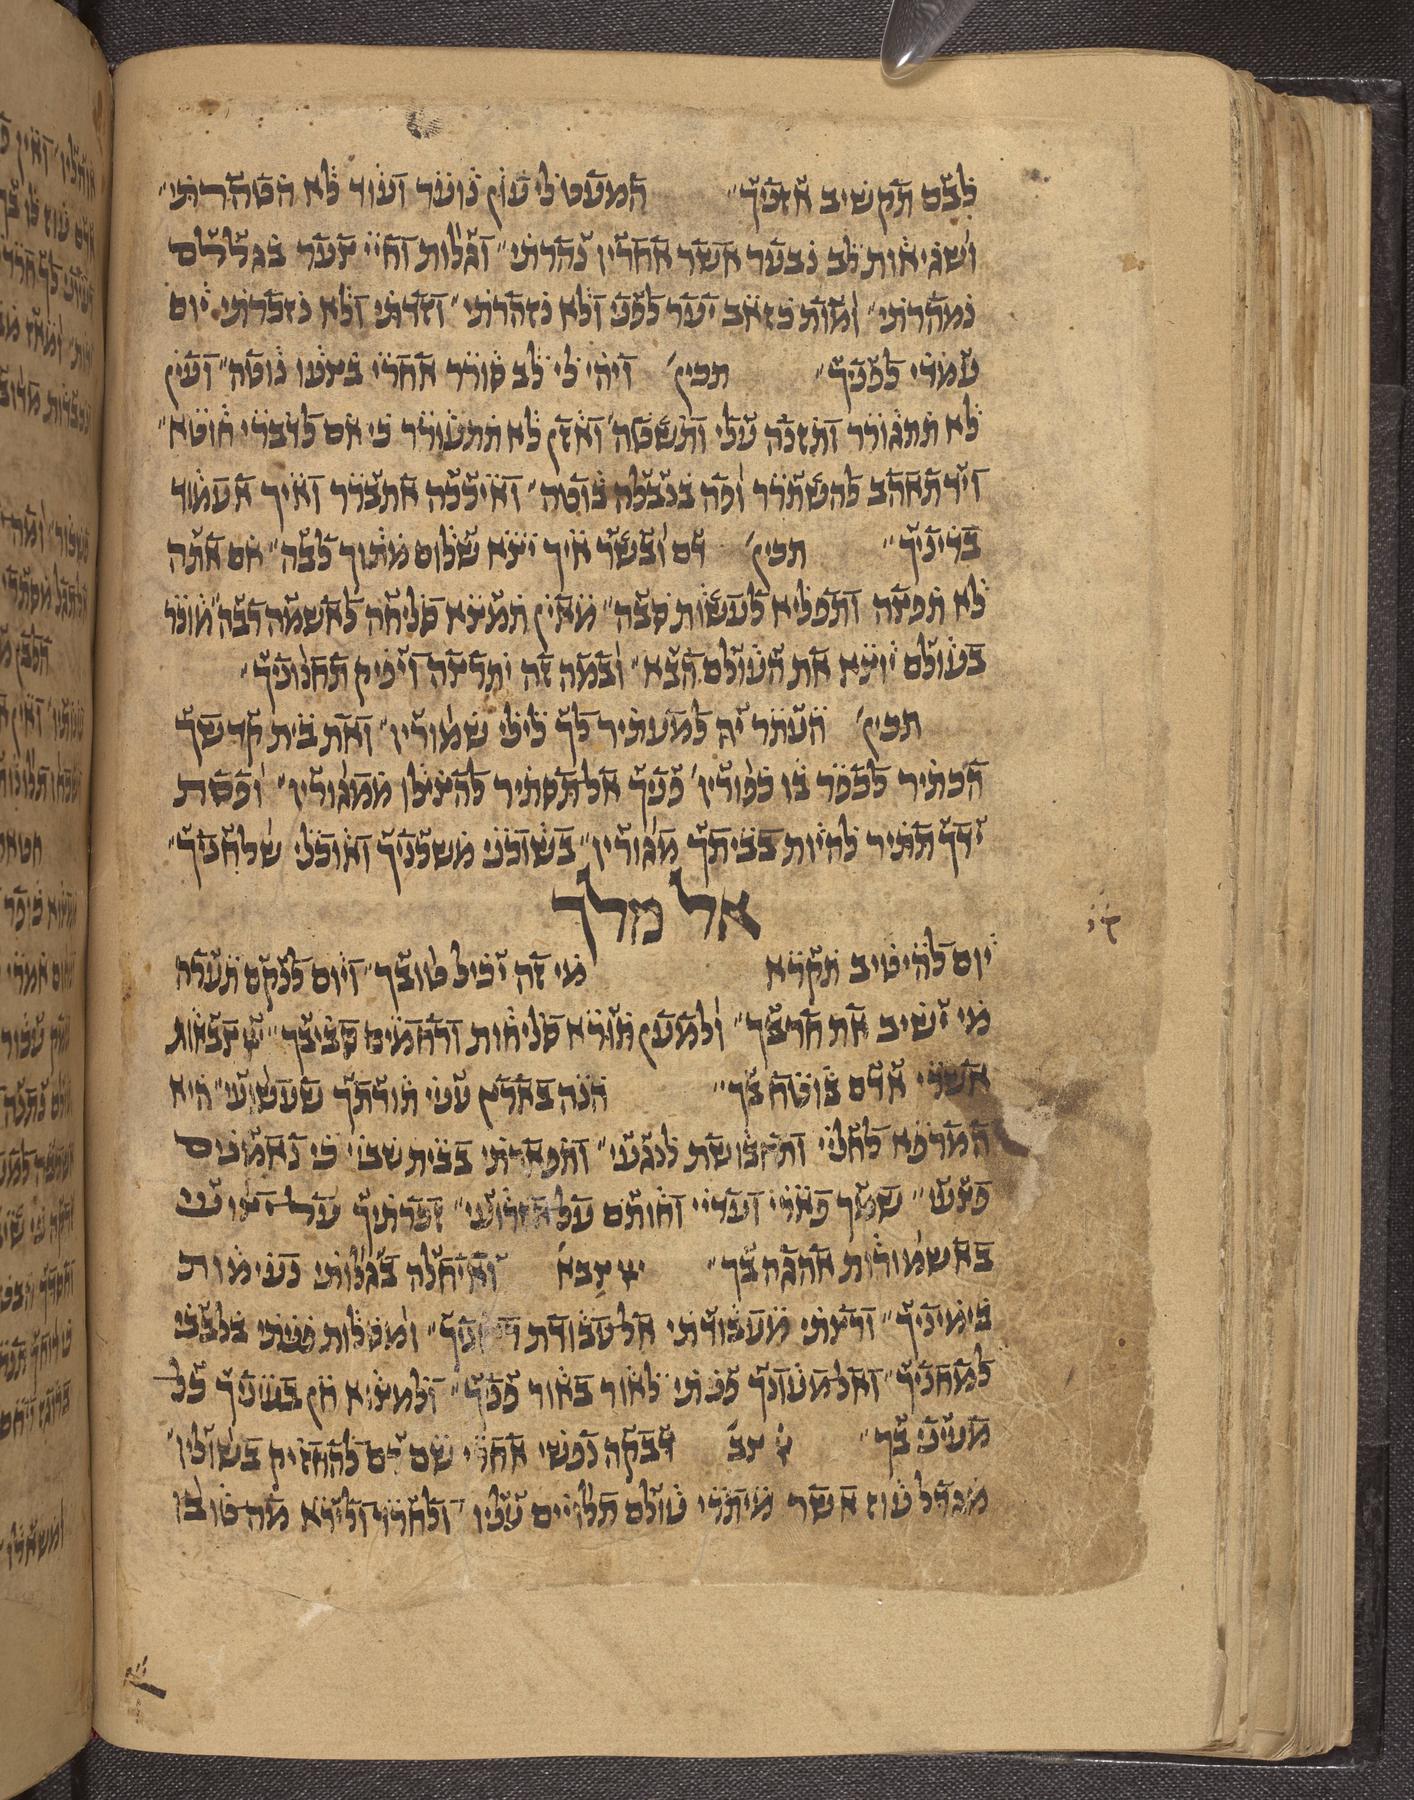 לבם תקשיב אזניך״ המעט לי עון נוער ועוד לא הטהרתי״
ושגיאות לב נבער אשר אחריו נהרתי״ וגלות וחיי צער בגללם
נמהרתי״ ומות כזאב יער לפני ולא נזהרתי״ וזדתי ולא נזכרתי יום
עמדי לפניך״ תכין׳ ויהי לי לב סורר אחרי בצעו נוטה״ ועין
לא תתגורר ותזנה עלי ותשטה״ ואזן לא תתעורר כי אם לדברי חוטא״
ויד תאהב להשתרר ופה בנבלה בוטה״ ואיככה אתברר ואיך אעמוד
בדיניך״ תכין׳ דם ובשר איך יצא שלום מתוך לבה״ אם אתה
לא תפצה ותפליא לעשות סבה״ מאין תמצא סליחה לאשמה רבה״
בעולם יוצא את העולם הבא״ ובמה זה יתרצה ויפיק תחנוניך״
תכין׳ העתר יה למעתיר לך לילי שמוריו״ ואת בית קדשך
הכתיר לכפר בו כפוריו׳ פניך אל תסתיר להצילו ממגוריו״ ופסת
ידך תתיר להיות בביתך מגוריו״ בשוכני משכניך ואוכלי שלחניך״
אל מלך
יום להיטיב תקרא מי זה יכיל טובך״ ויום לנקם תערה
מי ישיב את חרבך״ ולמען תורא סליחות ורחמים סביבך״ יי צבאות
אשרי אדם בוטח בך״ הנה בארץ עני תורתך שעשועי״ היא
המרפא לחליי ותחבושת לנגעי״ ותפארתי בבית שבי כי נאמנים
פצעי״ שמך פארי ועדיי וחותם על זרועי״ זכרתיך על יצועי
באשמורות אהגה בך״ יי צבא׳ ואיחלה בגלותי נעימות
בימיניך״ ורצתי מעבודתי אל עבודת״ ומסלות בלבבי
למחניך״ ואל מעונך פניתי לאור באור פניך״ ולמצוא חן בעיניך כל
מעיני בך״ יי צב׳ דבקה נפשי אחרי שם רם להחזיק בשוליו״
מגדל עוז אשר מיתרי עולם תלויים עליו״ מה טובו